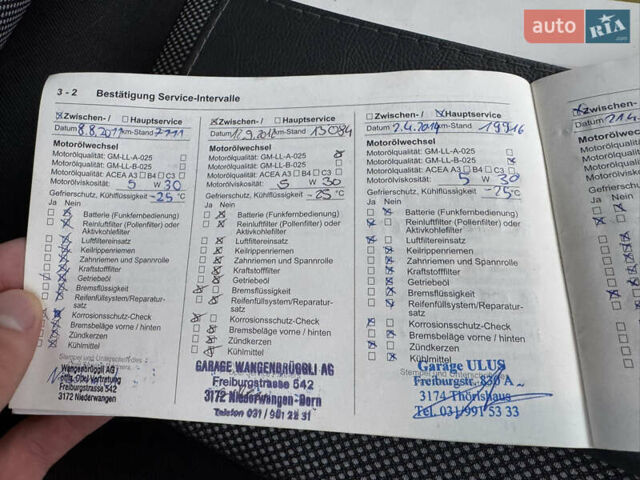 auto RIA
.com
3 - 2 Bestätigung Service-Intervalle
Zwischen- / Hauptservice
Datum 8.8.2011 km-Stand 7711
Motorölwechsel
Motorölqualität: GM-LL-A-025
Motorölqualität: GM-LL-B-025
Motorölqualität: ACEA A3 B4 C3
Motorölviskosität: 5 W 30
Gefrierschutz, Kühlflüssigkeit -25 °C
Ja Nein
Batterie (Funkfernbedienung)
Reinluftfilter (Pollenfilter) oder
Aktivkohlefilter
Luftfiltereinsatz
Keilrippenriemen
Zahnriemen und Spannrolle
Kraftstofffilter
Getriebeöl
Bremsflüssigkeit
Reifenfüllsystem/Reparatur-
satz
Korrosionsschutz-Check
Bremsbeläge vorne / hinten
Zündkerzen
Kühlmittel
Stempel und Unterschrift des
Wangenbrüggli AG
Opel Vertretung
Freiburgstrasse 542
3172 Niederwangen
Zwischen- / Hauptservice
Datum 11.9.2012 km-Stand 13084
Motorölwechsel
Motorölqualität: GM-LL-A-025
Motorölqualität: GM-LL-B-025
Motorölqualität: ACEA A3 B4 C3
Motorölviskosität: 5 W 30
Gefrierschutz, Kühlflüssigkeit -25 °C
Ja Nein
Batterie (Funkfernbedienung)
Reinluftfilter (Pollenfilter) oder
Aktivkohlefilter
Luftfiltereinsatz
Keilrippenriemen
Zahnriemen und Spannrolle
Kraftstofffilter
Getriebeöl
Bremsflüssigkeit
Reifenfüllsystem/Reparatur-
satz
Korrosionsschutz-Check
Bremsbeläge vorne / hinten
Zündkerzen
Kühlmittel
GARAGE WANGENBRÜGGLI AG
Freiburgstrasse 542
3172 Niederwangen-Bern
Telefon 031 / 981 28 31
Zwischen- / Hauptservice
Datum 2.4.2014 km-Stand 19916
Motorölwechsel
Motorölqualität: GM-LL-A-025
Motorölqualität: GM-LL-B-025
Motorölqualität: ACEA A3 B4 C3
Motorölviskosität: 5 W 30
Gefrierschutz, Kühlflüssigkeit -25 °C
Ja Nein
Batterie (Funkfernbedienung)
Reinluftfilter (Pollenfilter) oder
Aktivkohlefilter
Luftfiltereinsatz
Keilrippenriemen
Zahnriemen und Spannrolle
Kraftstofffilter
Getriebeöl
Bremsflüssigkeit
Reifenfüllsystem/Reparatur-
satz
Korrosionsschutz-Check
Bremsbeläge vorne / hinten
Zündkerzen
Kühlmittel
Stempel und Unterschrift
Garage ULUS
Freiburgstr. 830 A
3174 Thörishaus
Tel. 031/991 53 33
Zwischen- /
Datum 21.4.
Motorölwechsel
Motorölqualität:
Motorölqualität:
Motorölqualität:
Motorölviskosität:
Gefrierschutz, K
Ja Nein